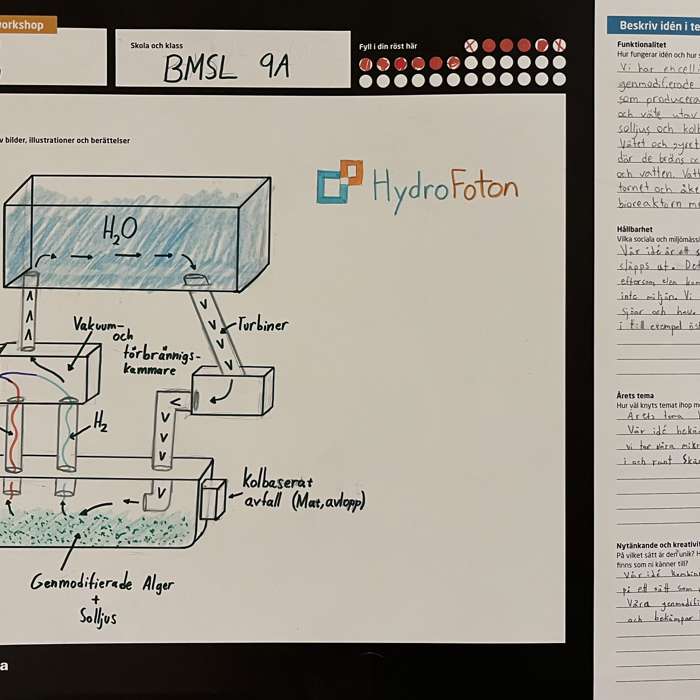 workshop
Skola och klass
BMSL 9A
Fyll i din röst här
v bilder, illustrationer och berättelser
HydroFoton
H₂O
Vakuum-
och
förbrännigs-
kammare
Turbiner
H₂
Kolbaserat
avfall (Mat, avlopp)
Genmodifierade Alger
+
Solljus
a
Beskriv idén i te
Funktionalitet
Hur fungerar idén och hur s
Vi har
genmodifierade
som producera
och väte utav
solljus och kolb
Vätet och syret
där de bränns oc
och vatten. Vatt
tornet och åke
bioreaktorn me
Hållbarhet
Vilka sociala och miljömässi
Vår idé är ett s
släpps ut. Det
eftersom den kom
inte miljön. Vi
sjöar och hav.
i till exempel öst
Årets tema
Hur väl knyts temat ihop me
Årets tema
Vår idé bekä
vi tar våra mikr
i och runt Skär
Nytänkande och kreativit
På vilket sätt är den unik? H
finns som ni känner till?
Vår idé kombin
på ett sätt som
Våra genmodifi
och bekämpar